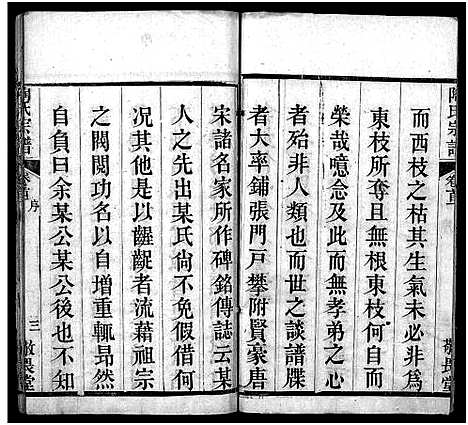 陶氏宗譜
卷首
敬畏堂
而西枝之枯其生氣未必非為
東枝所奪且無根東枝何自而
榮哉噫念及此而無孝弟之心
者殆非人類也而世之談譜牒
者大率鋪張門戶攀附賢豪唐
宋諸名家所作碑銘傳誌云某
人之先出某氏尙不免假借何
況其他是以齷齪者流藉祖宗
之閥閱功名以自增重輒昂然
自負曰余某公某公後也不知
陶氏宗譜
卷首
序
三
敬畏堂